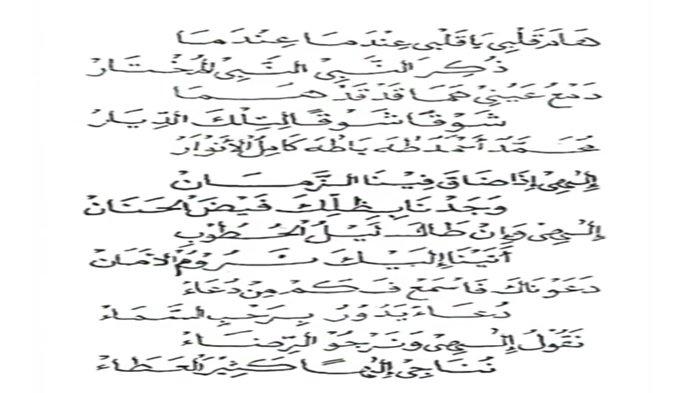 هَامَ قَلْبِي يَا قَلْبِي عِنْدَمَا عِنْدَمَا
ذُكِرَ النَّبِيْ النَّبِيْ الْمُخْتَارْ
دَمْعُ عَيْنِيْ هَمَا قَدْ قَدْ هَمَا
شَوْقًا شَوْقًا لِتِلْكَ الدِّيَارْ
مُحَمَّدْ أَحْمَدْ طٰهَ يَا طٰهَ كَامِلْ الْأَنْوَارْ
إِلٰهِيْ إِذَا ضَاقَ فِيْنَا الزَّمَانْ
وَجَدْنَا بِظِلِّكَ فَيْضَ الْحَنَانْ
إِلٰهِيْ وَإِنْ طَالَ لَيْلُ الْخُطُوْبِ
أَتَيْنَا إِلَيْكَ نَرُوْمُ الْأَمَانْ
دَعَوْنَاكَ فَاسْمَعْ فَكَمْ مِنْ دُعَاءْ
دُعَاءْ يَدُوْرُ بِرَحْبِ السَّمَاءْ
نَقُوْلُ إِلٰهِيْ وَنَرْجُوْ الرِّضَاءْ
نُنَاجِيْ إِلٰهًا كَثِيْرَ الْعَطَاءْ